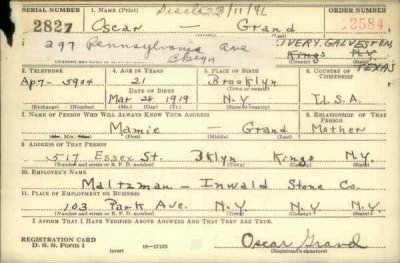 SERIAL NUMBER 1. NAME (Print) ORDER NUMBER
2827 Oscar — Grand 2584
297 Pennsylvania Ave IVERY, GALVESTON
Bklyn Kings N.Y.
TEXAS
3. TELEPHONE 4. AGE IN YEARS 5. PLACE OF BIRTH 6. COUNTRY OF CITIZENSHIP
Ap7- 5904 21 Brooklyn
DATE OF BIRTH (Town or county)
Mar 28 1919 N.Y U.S.A.
(Exchange) (Number) (Mo.) (Day) (Yr.) (State or country)
7. NAME OF PERSON WHO WILL ALWAYS KNOW YOUR ADDRESS 8. RELATIONSHIP OF THAT PERSON
Mamie — Grand Mother
(Mr., Mrs., Miss) (First) (Middle) (Last)
9. ADDRESS OF THAT PERSON
517 Essex St. Bklyn Kings N.Y.
(Number and street or R. F. D. number) (Town) (County) (State)
10. EMPLOYER'S NAME
Maltzman — Inwald Stone Co.
11. PLACE OF EMPLOYMENT OR BUSINESS
103 Park Ave. N.Y N.Y. N.Y.
(Number and street or R. F. D. number) (Town) (County) (State)
I AFFIRM THAT I HAVE VERIFIED ABOVE ANSWERS AND THAT THEY ARE TRUE.
REGISTRATION CARD
D. S. S. Form 1 (over) 16—17105 Oscar Grand
(Registrant's signature)